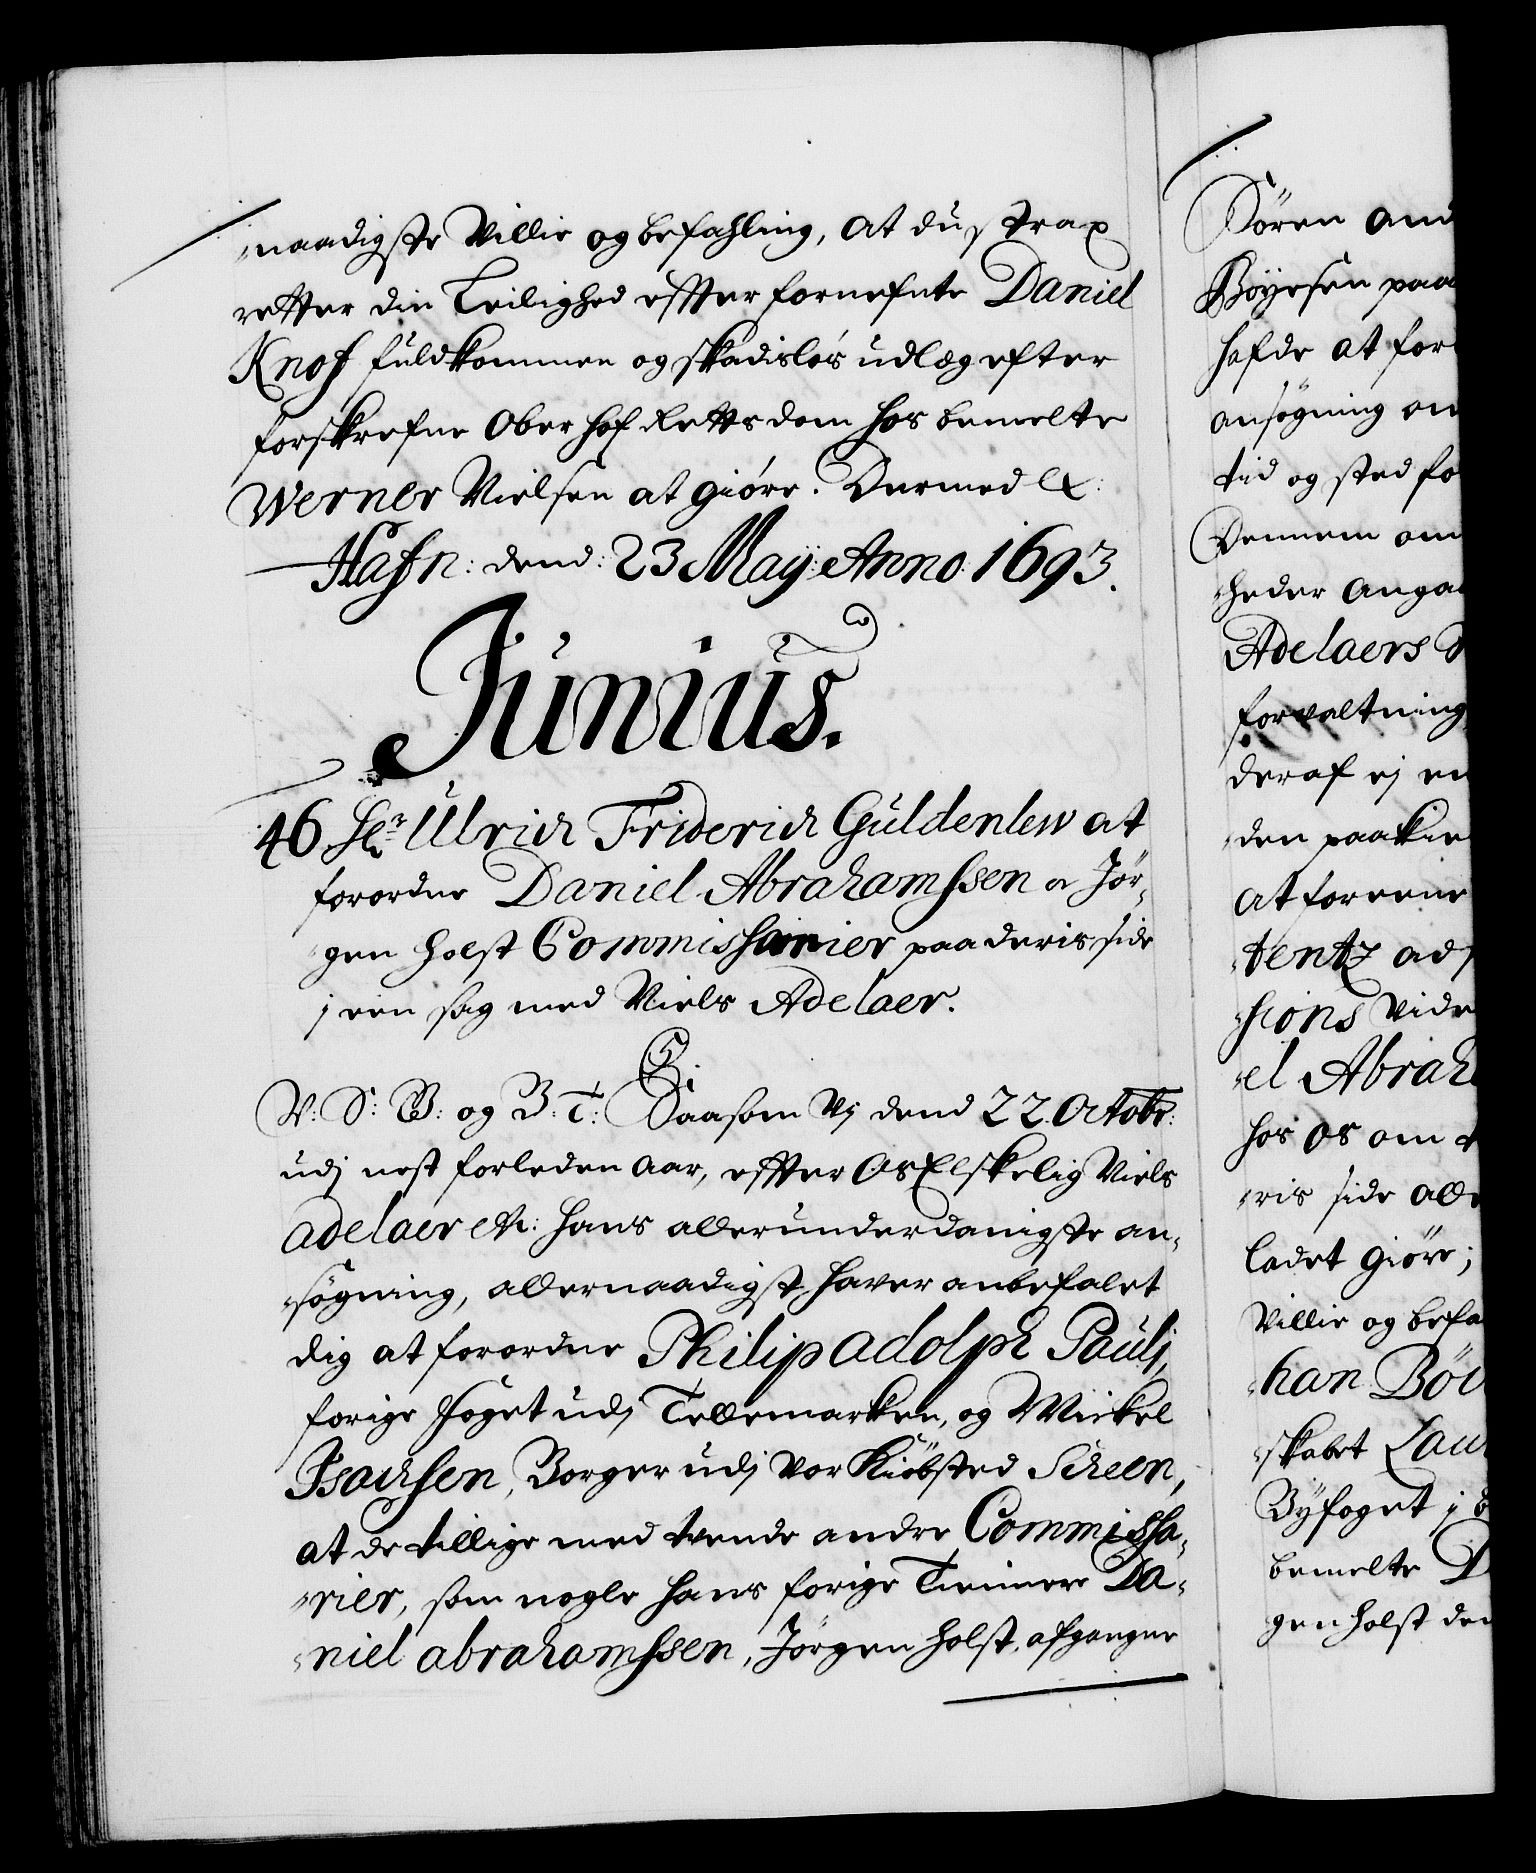 naadigste Villie og befahling, at du strax
retter din Leilighed effter fornefnte Daniel
Knof fuldkommen og skadisløs udlæg efter
forskrefne Ober hof Retts dom hos bemelte
Werner Nielsen at giøre. Dermed &:
Hafn: dend: 23 May: Anno 1693.
Junius.
46 Hr Ulrich Friderich Güldenlew at
forordne Daniel Abrahamssen og Jør-
gen Holst Commissarier paa deris side
j een sag med Niels Adelaer.
C5.
V: S: G: og B: T: Saasom Vj dend 22 Octobr:
udj nest forleden aar, effter Os Elskelig Niels
Adelaer etc: hans allerunderdanigste an-
søgning, allernaadigst haver anbefalet
dig at forordne Philip Adolph Paulj,
forige foget udj Tellemarken, og Mickel
Isachsen, Borger udj Vor Kiøbsted Scheen,
at de tillige med tvende andre Commissa-
rier, som nogle hans forige Tiennere Da-
niel Abrahamssen, Jørgen Holst, afgangne
Søren And
Böyesen paa
hafde at for
ansøgning om
tid og sted fo
Dennem om
heder anga
Adelaers
forvaltning
deraf ej en
den paakie
at foreene
tentz ad
sions Vide
el Abrah
hos os om
ris side alle
ladet giøre;
Villie og befa
han Böi
skabet Lau
Byfoget i
bemelte D
gen Holst den